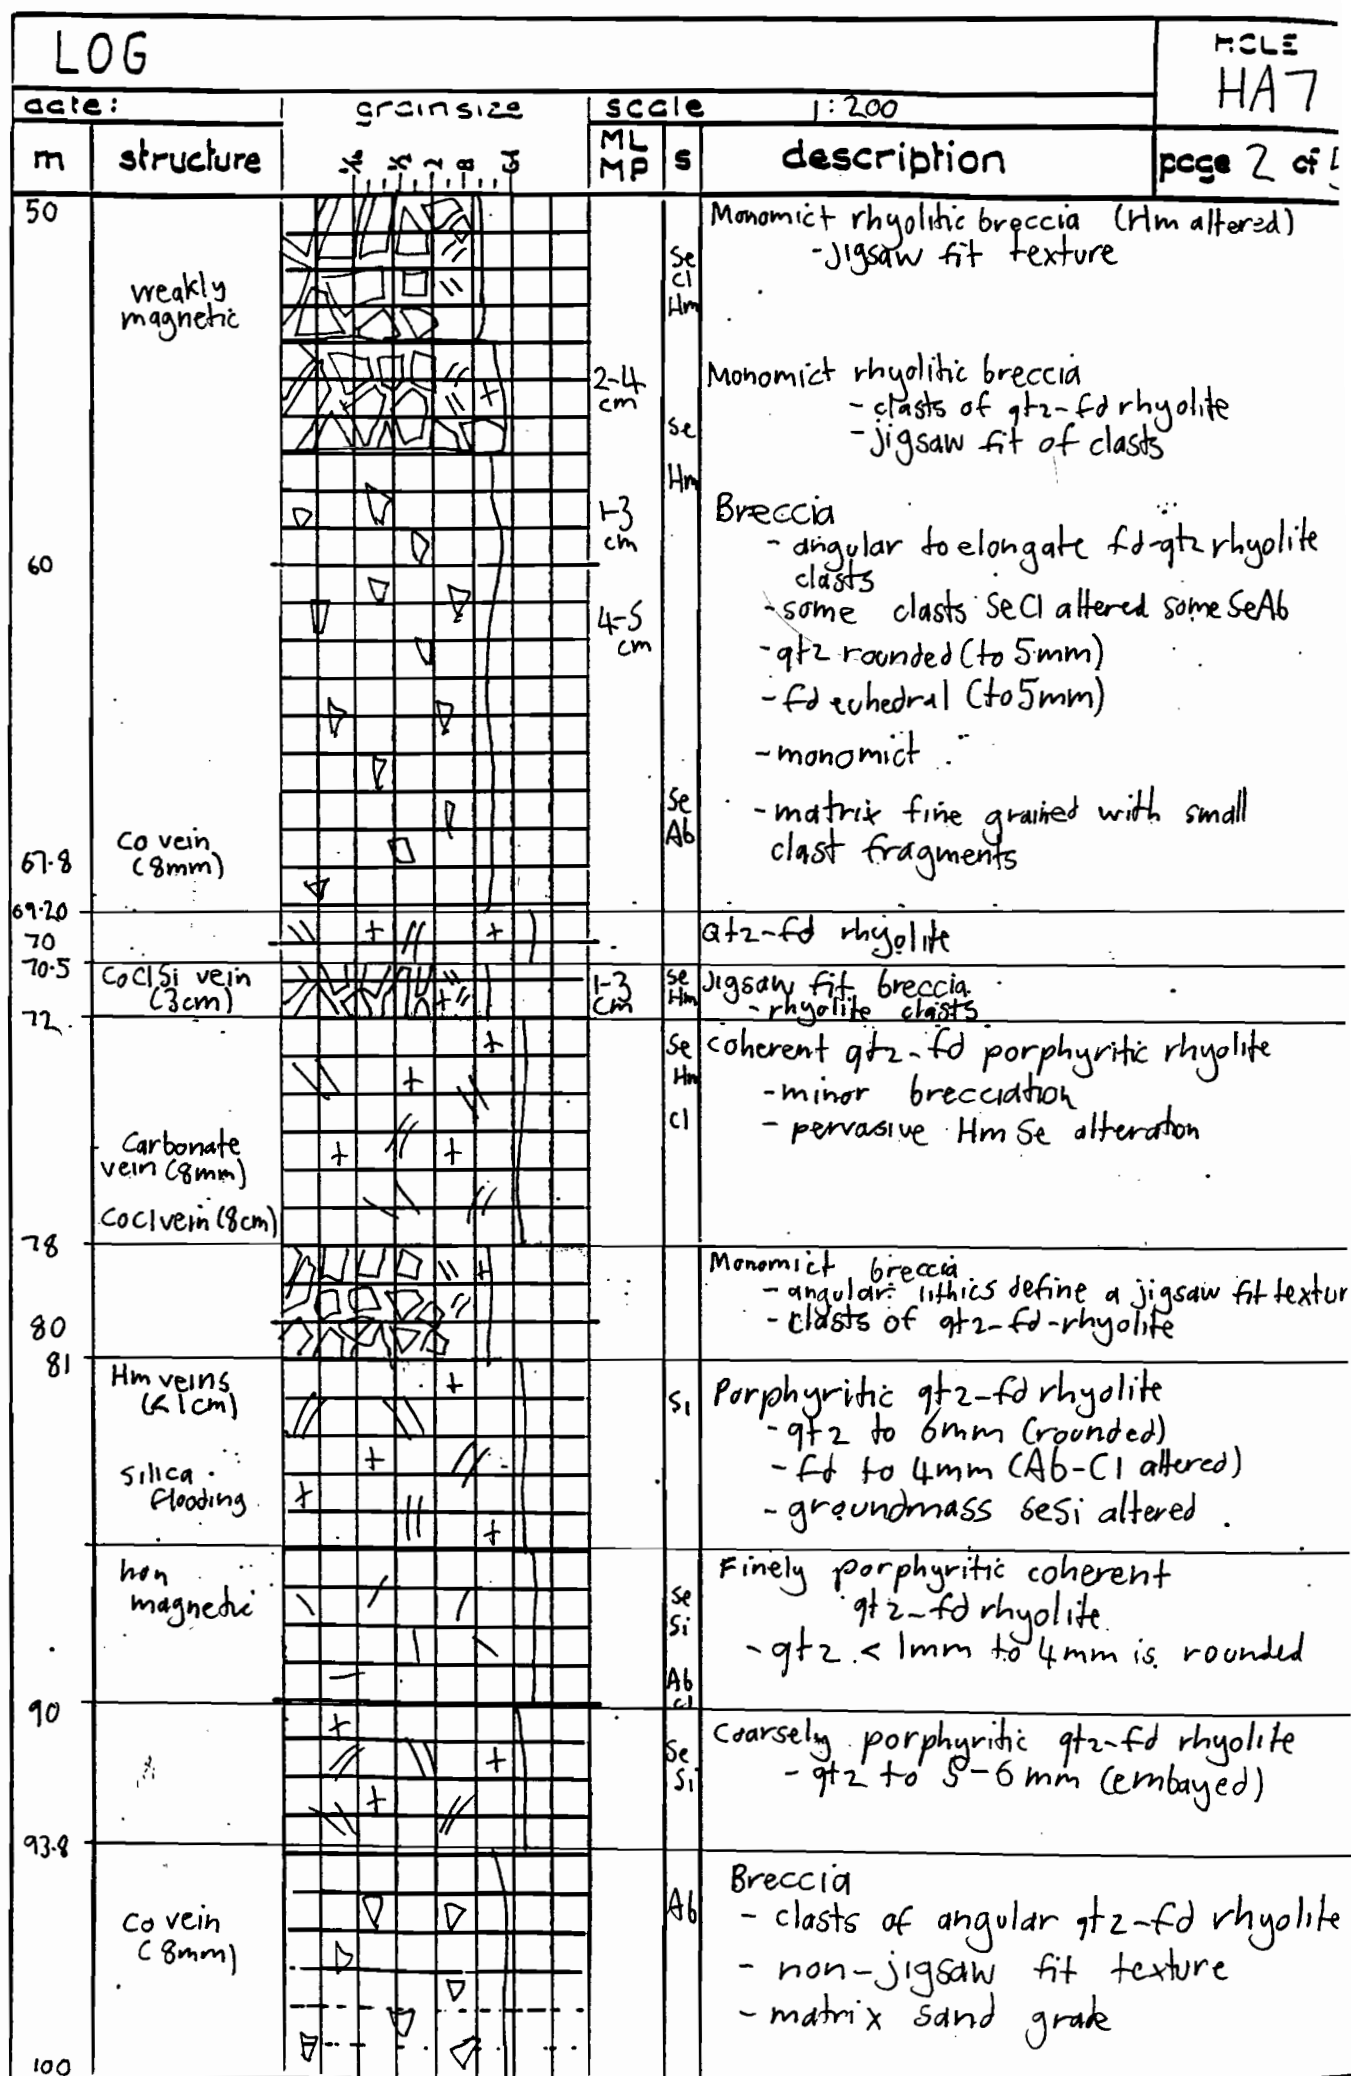 LOG
HOLE
HA7
date:
grainsize
scale 1:200
m
structure
ML
MP
s
description
page 2 of
50
Monomict rhyolitic breccia (Hm altered)
-jigsaw fit texture
Se
Cl
Hm
weakly
magnetic
2-4
cm
Monomict rhyolitic breccia
- clasts of qtz-fd rhyolite
- jigsaw fit of clasts
Se
Hm
1-3
cm
Breccia
- angular to elongate fd-qtz rhyolite
clasts
60
- some clasts SeCl altered some SeAb
4-5
cm
- qtz rounded (to 5mm)
- fd euhedral (to 5mm)
- monomict
Se
Ab
- matrix fine grained with small
clast fragments
Co vein
(8mm)
67.8
69.20
Qtz-fd rhyolite
70
70.5
CoClSi vein
(3cm)
1-3
cm
Se
Hm
Jigsaw fit breccia
- rhyolite clasts
72
Se
Hm
Cl
coherent qtz-fd porphyritic rhyolite
- minor brecciation
- pervasive Hm Se alteration
Carbonate
vein (8mm)
CoCl vein (8cm)
78
Monomict breccia
- angular lithics define a jigsaw fit textur
- clasts of qtz-fd-rhyolite
80
81
Hm veins
(<1cm)
Si
Porphyritic qtz-fd rhyolite
- qtz to 6mm (rounded)
- fd to 4mm (Ab-Cl altered)
- groundmass SeSi altered
silica
flooding
non
magnetic
Se
Si
Ab
Cl
Finely porphyritic coherent
qtz-fd rhyolite
- qtz <1mm to 4mm is rounded
90
Se
Si
Coarsely porphyritic qtz-fd rhyolite
- qtz to 5-6mm (embayed)
93.8
Breccia
Ab
- clasts of angular qtz-fd rhyolite
- non-jigsaw fit texture
- matrix sand grade
Co vein
(8mm)
100